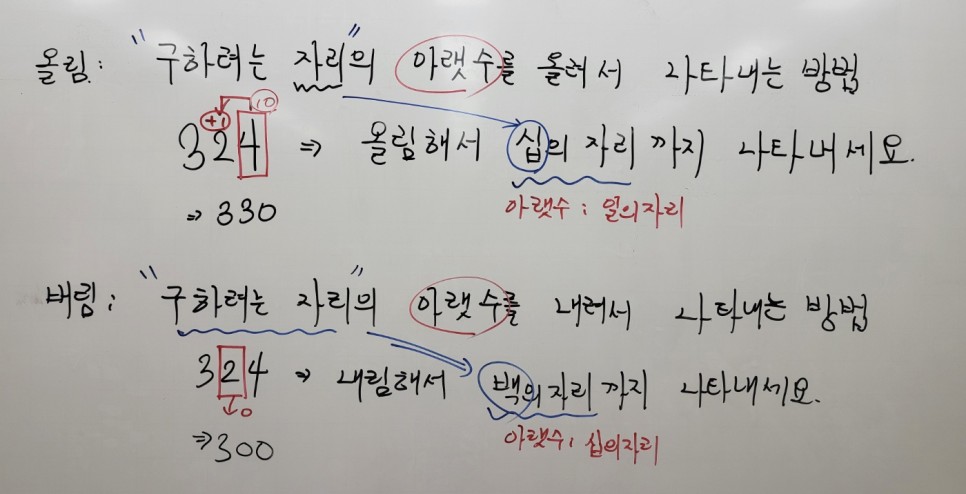 올림: "구하려는 자리"의 아랫수를 올려서 나타내는 방법
+1 10
324 ⇒ 올림해서 십의 자리 까지 나타내세요.
⇒ 330 아랫수 : 일의자리
버림 : "구하려는 자리"의 아랫수를 내려서 나타내는 방법
324 ⇒ 내림해서 백의자리 까지 나타내세요.
↓0
⇒300 아랫수: 십의자리